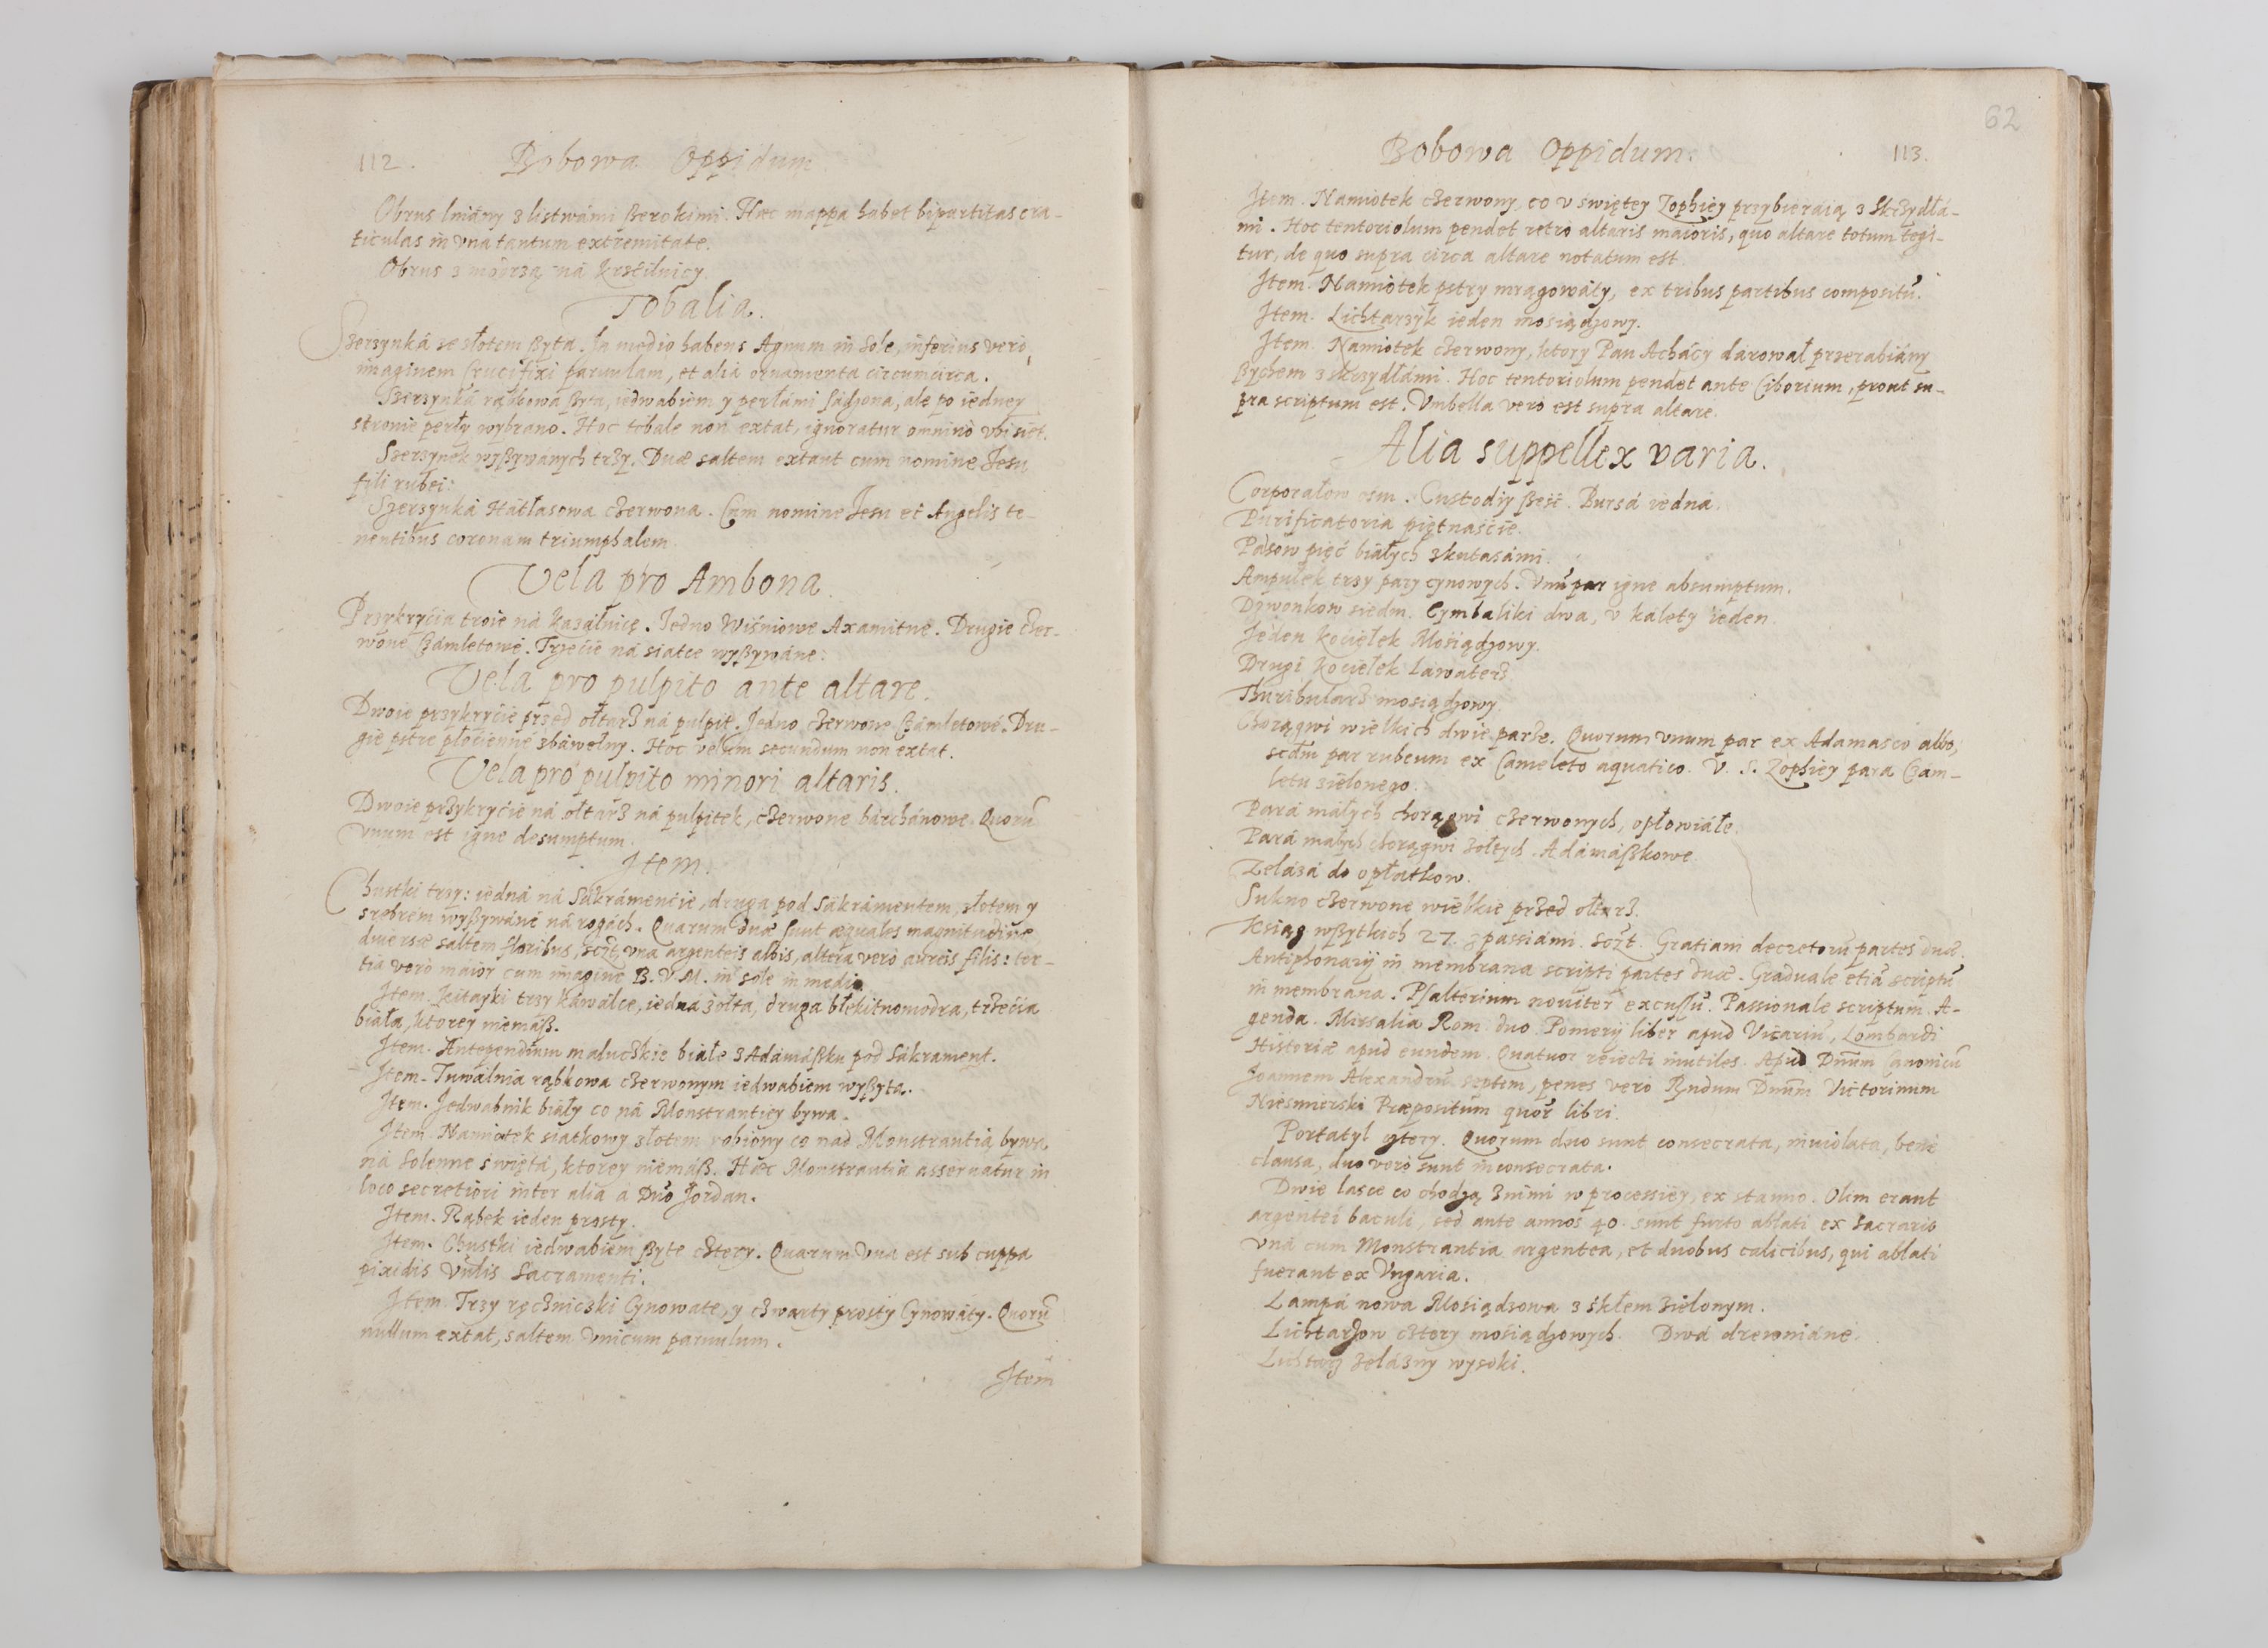 112. Bobowa Oppidum
Obrus lniány z listwámi ßerokimi. Hæc mappa habet bipartitas cra-
ticulas in vna tantum extremitate.
Obrus z modrzą ná krzćilnicy.
Tobalia.
Szerzynká ze złotem ßyta. In medio habens Agnum in Sole, inferius verò
imaginem Crucifixi paruulam, et alia ornamenta circumcirca.
Szerzynká rąbkowa ßyta, iedwabiem y perłámi sádzona, ale po iedney
stronie perły wybrano. Hoc tobale non extat, ignoratur omnino vbi siet.
Szerzynek wyßywanych trzy. Duæ saltem extant cum nomine Jesu
fili rubei:
Szerzynká Hátłasowa czerwona. Cum nomine Jesu et Angelis te-
nentibus coronam triumphalem
Vela pro Ambona.
Przykryćia troie ná kazálnicę. Jedno Wiśniowe Axamitne. Drugie czer-
wone Czámletowe. Trzećie ná siatce wyßywáne:
Vela pro pulpito ante altare.
Dwoie przykryćie przed ołtarz ná pulpit. Jedno czerwone Czámletowé. Dru-
gie pstre płócienne z báwełny. Hoc velum secundum non extat.
Vela pro pulpito minori altaris.
Dwoie przykryćie ná ołtarz ná pulpitek, czerwone bárchánowe. Quorũ
vnum est igne desumptum.
Item.
Chustki trzy: iedná ná Sákrámenćie, druga pod Sákrámentem, złotem y
srebrem wyßywáné ná rogách. Quarum duæ sunt æquales magnitudine
diuersæ saltem floribus, sczt, vna argenteis albis, altera verò aureis filis: ter-
tia verò maior cum imagine B. V. M. in sole in medio
Item. Kitayki trzy káwálce, iedna żołta, druga błękitnomodra, trzećia
biała, ktorey niemáß.
Item. Antependium maluczkie białe z Adámáßku pod Sákrament.
Item. Tuwálnia rąbkowa czerwonym iedwabiem wyßyta.
Item. Jedwabnik biały co ná Monstrantiey bywa.
Item Namiotek siatkowy złotem robiony co nad Monstrantią bywa
ná Solenne święta, ktorey niemáß. Hæc Monstrantia asseruatur in
loco secretiori inter alia a Dño Jordan.
Item. Rąbek ieden prosty.
Item. Chustki iedwabiem ßyte cztery. Quarum vna est sub cuppa
pixidis Vulis Sacramenti.
Item Trzy ręczniczki Cynowate, y czwarty prosty Cynowáty. Quorũ
nullum extat, saltem vnicum paruulum.
Item
62
Bobowa Oppidum. 113.
Item. Namiotek czerwony, co v świętey Zophiey przybieráią z skrzydłá-
mi. Hoc tentoriolum pendet retro altaris maioris, quo altare totum tegi-
tur, de quo supra circa altare notatum est
Item. Namiotek pstry mrągowáty, ex tribus partibus compositũ.
Item. Lichtarzyk ieden mosiądzowy.
Item. Namiotek czerwony, ktory Pan Achácy dárował przerabiány
ßychem z skrzydłámi. Hoc tentoriolum pendet ante Ciborium, prout su-
pra scriptum est. Vmbella verò est supra altare.
Alia suppellex varia.
Corporałow osm. Custodiy ßeść. Bursá iedná.
Purificatoria piętnaśćie.
Pásow pięć białych z kutasámi.
Ampułek trzy pary cynowych. Vnũ par igne absumptum.
Dzwonkow siedm. Cymbaliki dwa, v kalety ieden.
Jeden kociełek Mosiądzowy.
Drugi kociełek Lawaterz
Thuribularz mosiądzowy
Chorągwi wielkich dwie parze. Quorum vnum par ex Adamasco albo,
scdm par rubeum ex Cameleto aquatico. V. S. Zophiey para Czám-
letu zielonego.
Pará máłych chorągwi czerwonych, opłowiáłe.
Pará małych chorągwi żołtych. Adámáßkowe
Zelázá do opłatkow.
Sukno czerwone wielkie przed ołtarz.
Ksiąg wßytkich 27. z passiámi. Sczt. Gratiani decretorũ partes duæ.
Antiphonarij in membrana scripti partes duæ. Graduale etiã scriptũ
in membrana. Psalterium nouiter excussũ. Passionale scriptum. A-
genda. Missalia Rom. duo. Pomerij liber apud Vicariũ, Lombardi
Historiæ apud eundem. Quatuor reiecti inutiles. Apud Dnum Canonicũ
Joannem Alexandrũ septem, penes verò Rndum Dnum Victorinum
Niesmierski Præpositum quor libri.
Portatyl cztery. Quorum duo sunt consecrata, inuiolata, benè
clausa, duo verò sunt inconsecrata.
Dwie lasce co chodzą z nimi w processiey, ex stanno. Olim erant
argentei baculi, sed ante annos 40. sunt furto ablati ex Sacrario
vnà cum Monstrantia argentea, et duobus calicibus, qui ablati
fuerant ex Vngaria.
Lampá nowa Mosiądzowa z śkłem zielonym.
Lichtarzow cztery mosiądzowych. Dwá drewniáne.
Lichtarz żelázny wysoki.